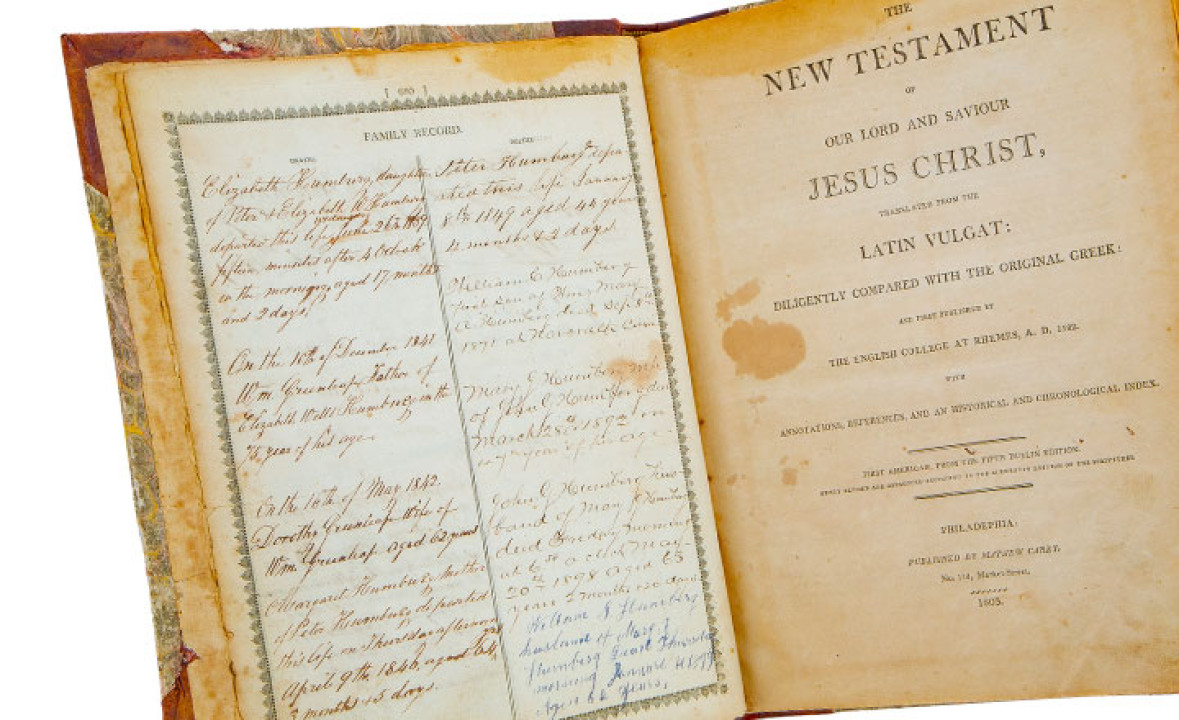 FAMILY RECORD.
DEATHS.
Elizabeth Humburg, daughter
of Peter & Elizabeth W. Humburg
departed this life June 26th
fifteen minutes after 4 Oclock
in the morning, aged 17 months
and 2 days.
On the 16th of December 1841
Wm. Greenleaf Father of
Elizabeth Wells Humburg in the
year of his age
On the 16th of May 1842.
Dorothy Greenleaf Wife of
Wm. Greenleaf aged 62 years
Margaret Humburg Mother
of Peter Humburg departed
this life on Thursday afternoon
April 9th 1846, aged 64,
3 months & 5 days.
DEATHS.
Peter Humburg depa
rted this life January
8th 1849 aged 44 years
months & 2 days.
William C Humberg
first son of Wm. Mary
A. Humberg died Sept 8th
1871 at
Mary J Humberg wife
of John G Humberg died
March 28th 1892 in
year of her age
John G Humberg hus
band of Mary J Humberg
died Friday morning
at 6 o clock May
20th 1898 aged 65
years 2 months & 20 days
William N. Humberg
husband of Mary J.
Humberg Died Thursday
morning
Aged 62 Years,
THE
NEW TESTAMENT
OF
OUR LORD AND SAVIOUR
JESUS CHRIST,
TRANSLATED FROM THE
LATIN VULGAT:
DILIGENTLY COMPARED WITH THE ORIGINAL GREEK:
AND FIRST PUBLISHED BY
THE ENGLISH COLLEGE AT RHEMES, A. D. 1582.
WITH
ANNOTATIONS, REFERENCES, AND AN HISTORICAL AND CHRONOLOGICAL INDEX.
FIRST AMERICAN, FROM THE FIFTH DUBLIN EDITION.
NEWLY REVISED AND CORRECTED ACCORDING TO THE CLEMENTIN EDITION OF THE SCRIPTURES.
PHILADEPHIA:
PUBLISHED BY MATHEW CAREY,
No. 118, Market-Street,
1805.